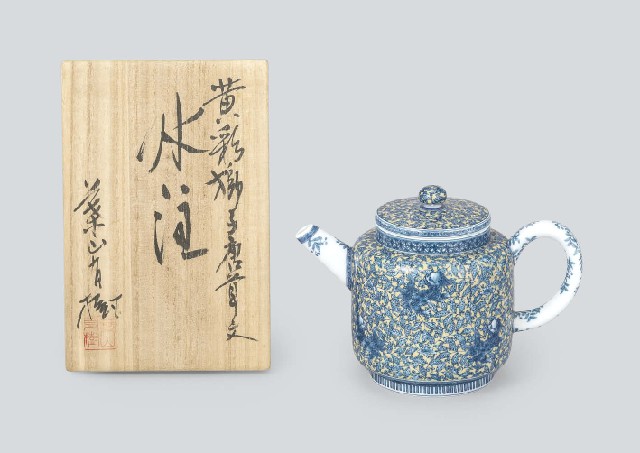 黄彩獅子唐草文
水注
葉山有樹